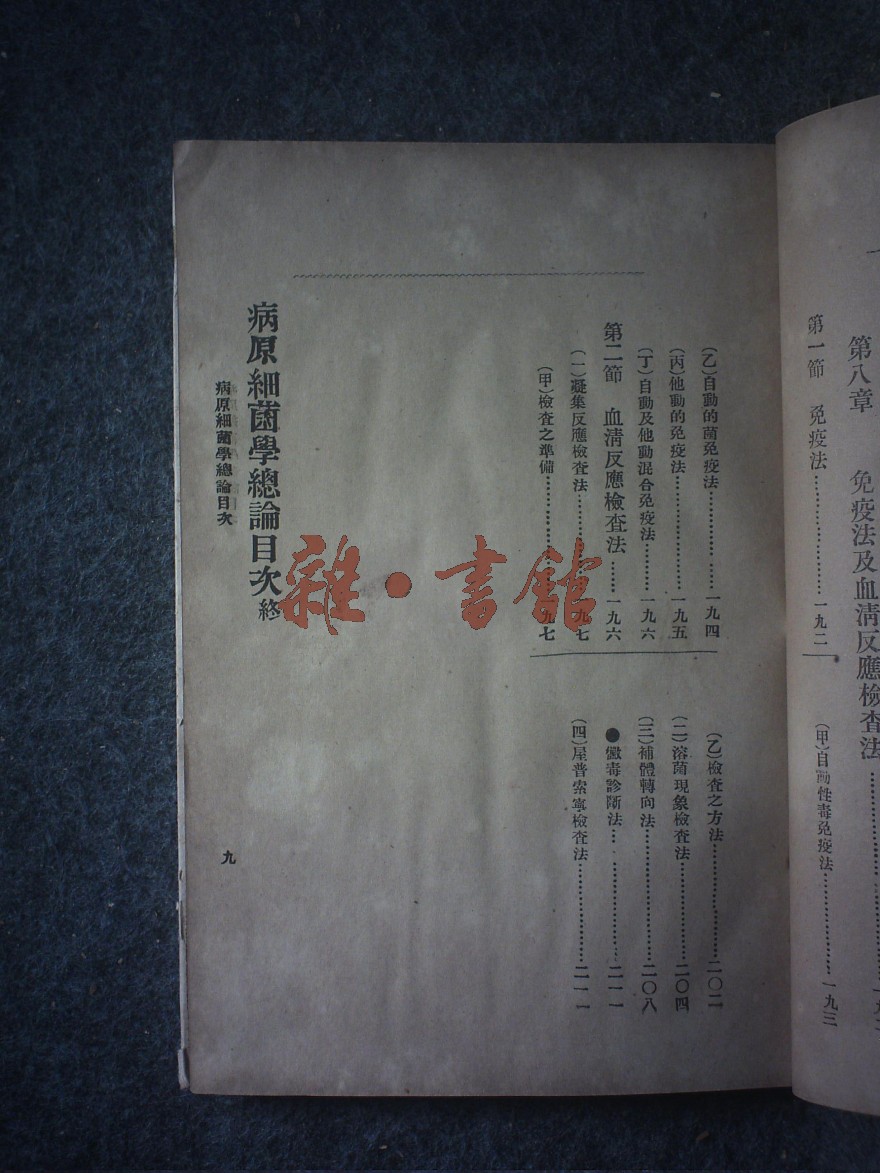 第八章 免疫法及血清反應檢査法
第一節 免疫法…………一九二
(甲)自動性毒免疫法…………一九三
(乙)自動的菌免疫法…………一九四
(丙)他動的免疫法…………一九五
(丁)自動及他動混合免疫法…………一九六
第二節 血清反應檢査法……一九六
(一)凝集反應檢査法…………一九七
(甲)檢査之準備…………一九七
(乙)檢査之方法…………二〇二
(二)溶菌現象檢査法…………二〇四
(三)補體轉向法…………二〇八
●黴毒診斷法…………二一一
(四)屋普索寧檢査法…………二一一
病原細菌學總論目次終
病原細菌學總論目次
九
雜·書館